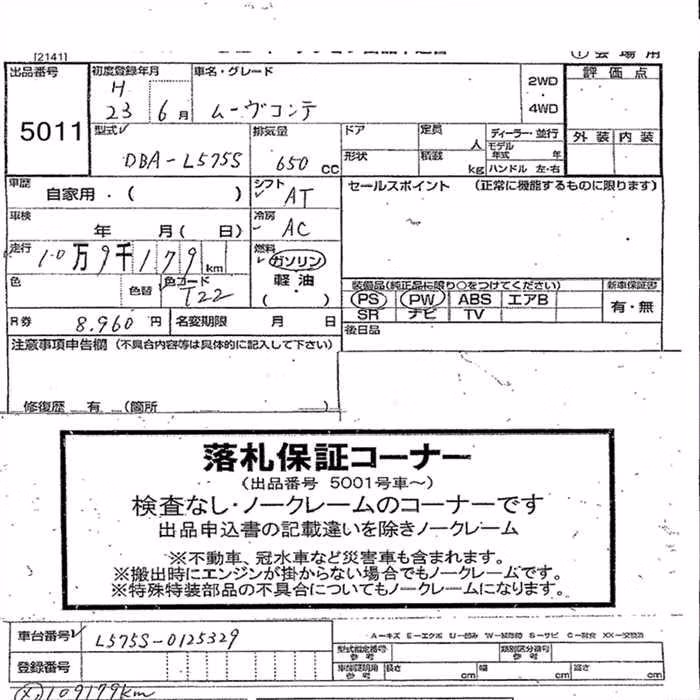 [2141]
① 会場用
出品番号 初度登録年月 車名・グレード 2WD 評価点
H
23 6月 ムーヴコンテ 4WD
5011
型式 排気量 ドア 定員 人 ディーラー・並行 外装 内装
モデル年式 年
DBA-L575S 650cc 形状 積載 kg ハンドル 左・右
車歴 自家用・( ) シフト AT セールスポイント (正常に機能するものに限ります)
車検 年 月( 日) 冷房 AC
走行 10万9千179km 燃料 ガソリン
色 色替 色コード T22 軽油 ( )
装備品(純正品に限り○をつけてください) 新車保証書
PS PW ABS エアB 有・無
SR ナビ TV
R券 8.960円 名変期限 月 日 後日品
注意事項申告欄 (不具合内容等は具体的に記入して下さい)
修復歴 有 (箇所 )
落札保証コーナー
(出品番号 5001号車~)
検査なし・ノークレームのコーナーです
出品申込書の記載違いを除きノークレーム
※不動車、冠水車など災害車も含まれます。
※搬出時にエンジンが掛からない場合でもノークレームです。
※特殊特装部品の不具合についてもノークレームになります。
車台番号 L575S-0125329
A-キズ E-エクボ U-凹み S-サビ
型式指定番号 参考 類別区分番号 参考
登録番号 参考 長さ cm 幅 cm 高さ cm
109179km